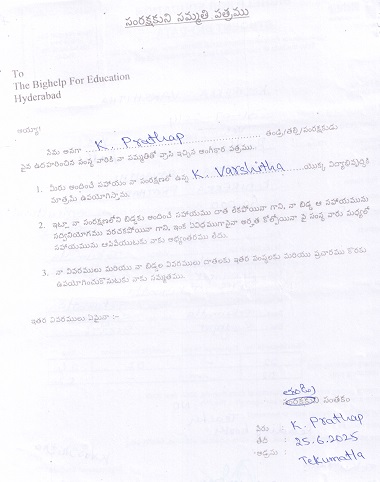 సంరక్షకుని సమ్మతి పత్రము
To
The Bighelp For Education
Hyderabad
అయ్యా!
నేను అనగా K. Prathap తండ్రి/తల్లి/సంరక్షకుడు
పైన ఉదహరించిన సంస్థ వారికి నా సమ్మతితో వ్రాసి ఇచ్చిన అంగీకార పత్రము.
1. మీరు అందించే సహాయం నా సంరక్షణలో ఉన్న K. Varshitha యొక్క విద్యాభివృద్ధికి
మాత్రమే ఉపయోగిస్తాను.
2. ఇట్లా నా సంరక్షణలోని బిడ్డకు అందించే సహాయము దాత లేకపోయినా గాని, నా బిడ్డ ఆ సహాయమును
సద్వినియోగము పరచకపోయినా గాని, ఇంక ఏవిధముగానైనా అర్హత కోల్పోయినా పై సంస్థ వారు మధ్యలో
సహాయమును ఆపివేయుటకు నాకు అభ్యంతరము లేదు.
3. నా వివరములు మరియు నా బిడ్డల వివరములు దాతలకు ఇతర సంస్థలకు మరియు ప్రచారము కొరకు
ఉపయోగించుకొనుటకు నాకు సమ్మతము.
ఇతర వివరములు ఏమైనా :-
తండ్రి
సంరక్షకుని సంతకం
పేరు : K. Prathap
తేది : 25.6.2025
అడ్రసు : Tekumatla